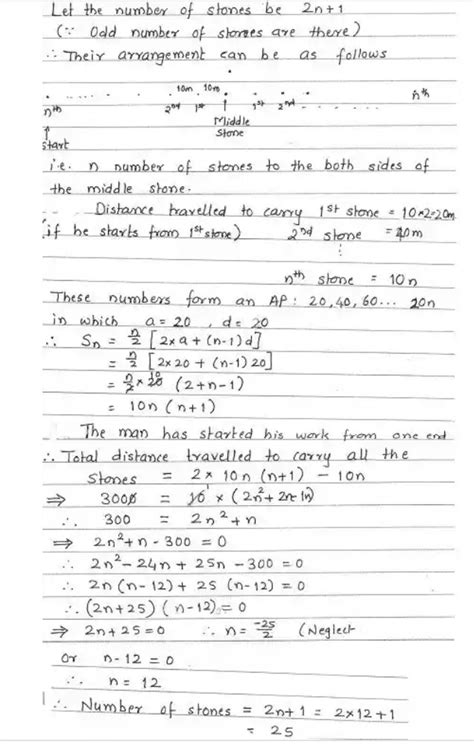 Let the number of stones be 2n+1
(∵ Odd number of stones are there)
∴ Their arrangement can be as follows
10m 10m
nth 2nd 1st 1st 2nd nth
Middle
Stone
start
i.e. n number of stones to the both sides of
the middle stone.
Distance travelled to carry 1st stone = 10×2=20m
(if he starts from 1st stone) 2nd stone = 40m
⋮
nth stone = 10n
These numbers form an AP: 20, 40, 60... 20n
in which a = 20, d = 20
∴ Sn = n/2 [2×a + (n-1)d]
= n/2 [2×20 + (n-1)20]
= n/2 × 20 (2+n-1)
= 10n (n+1)
The man has started his work from one end
∴ Total distance travelled to carry all the
stones = 2 × 10n (n+1) - 10n
⇒ 3000 = 10 × (2n²+2n-1n)
∴ 300 = 2n²+n
⇒ 2n²+n-300 = 0
∴ 2n²-24n+25n-300 = 0
∴ 2n (n-12) + 25 (n-12) = 0
∴ (2n+25) (n-12) = 0
⇒ 2n+25=0 ∴ n = -25/2 (Neglect
or n-12 = 0
∴ n = 12
∴ Number of stones = 2n+1 = 2×12+1
= 25